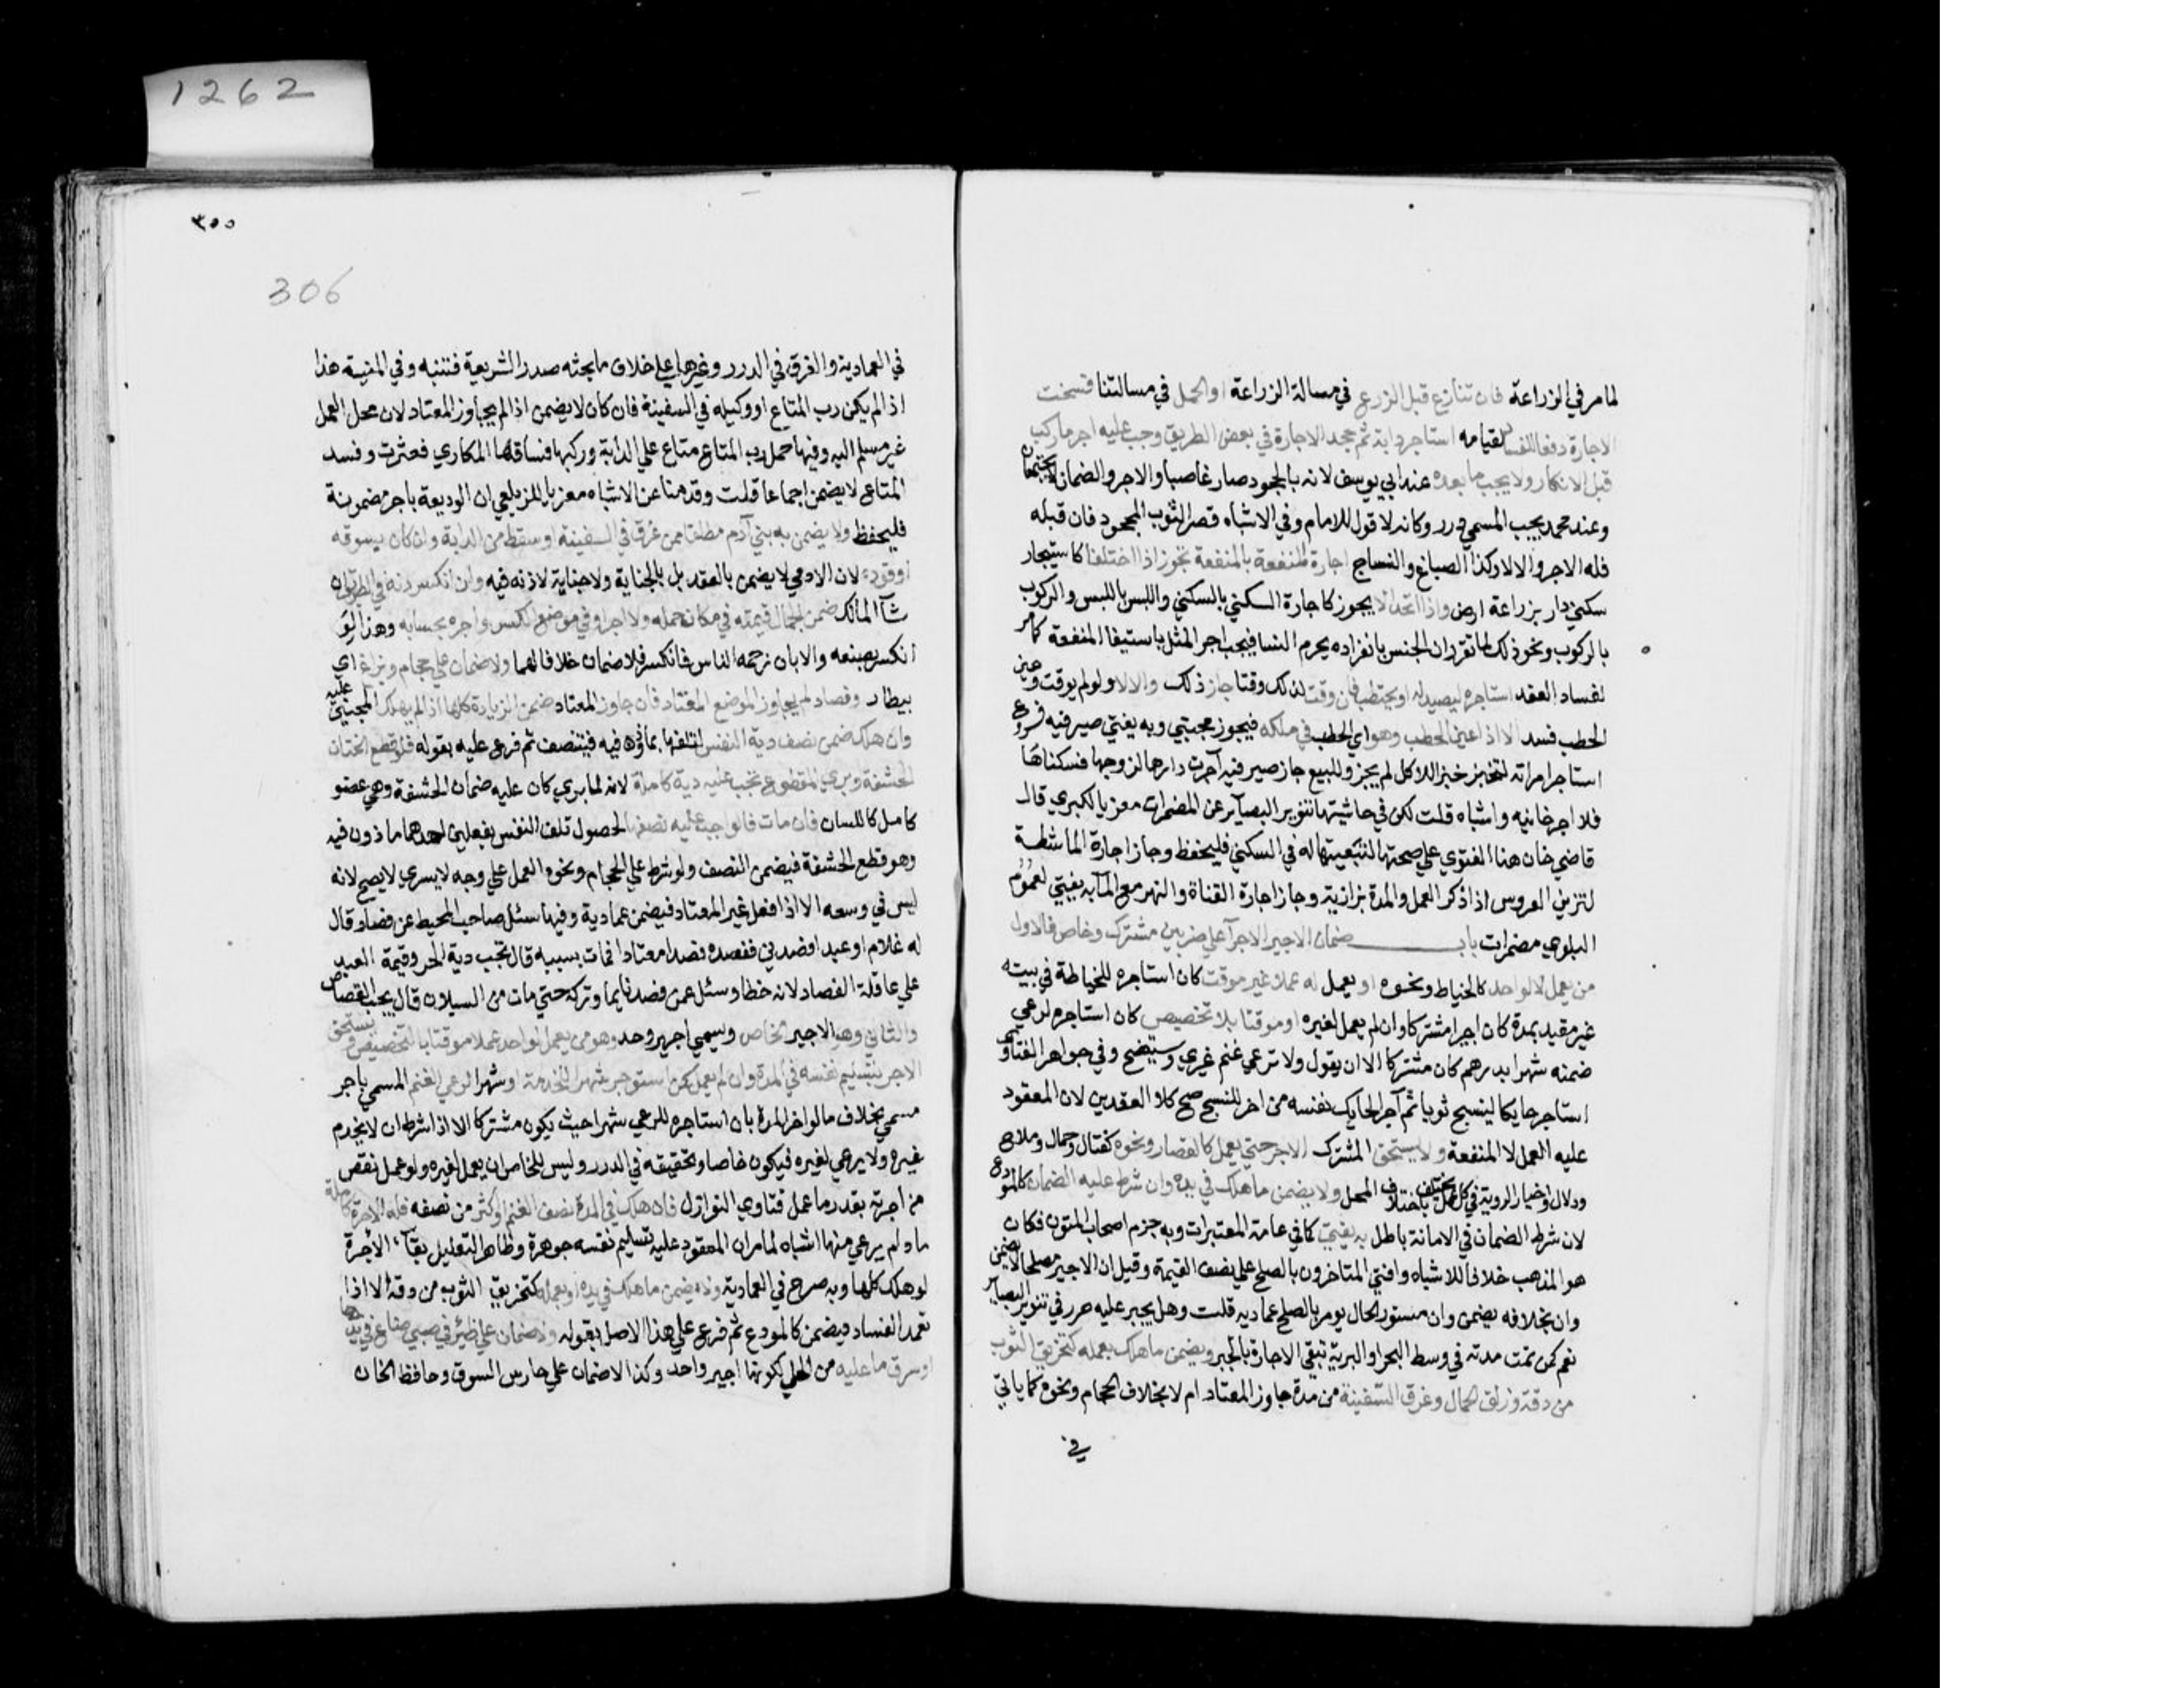 1262
لمامر في الزراعة فان تنازع قبل الزرع في مسالة الزراعة اوالحمل في مسالتنا فسخت
الاجارة دفعا للفساد لقيامه استاجر دابة ثم جحد الاجارة في بعض الطريق وجب عليه اجر ماركب
قبل الانكار ولا يجب ما بعده عند ابي يوسف لانه بالجحود صار غاصبا والاجر والضمان لا يجتمعان
وعند محمد يجب المسمي درر وكانه لا قول للامام وفي الاشباه قصر الثوب المجحود فان قبله
فله الاجر والا لا وكذا الصباغ والنساج اجارة المنفعة بالمنفعة تجوز اذا اختلفا كاستيجار
سكني دار بزراعة ارض واذا اتحدا لا يجوز كاجارة السكني بالسكني واللبس باللبس والركوب
بالركوب ونحو ذلك لما تقرر ان الجنس بانفراده يحرم النسا فيجب اجر المثل باستيفا المنفعة كما مر
لفساد العقد استاجره ليصيد له او يحتطب فان وقت لذلك وقتا جاز ذلك والا لا ولو لم يوقت وعين
الحطب فسد الا اذا عين الحطب وهو اي الحطب في ملكه فيجوز مجبتي وبه يفتي صيرفيه فروع
استاجر امراته لتخبز خبزا للاكل لم يجز وللبيع جاز صيرفيه آجرت دارها لزوجها فسكناها
فلا اجر خانيه واشباه قلت لكن في حاشيتها تنوير البصآير عن المضمرات معزيا للكبري قال
قاضي خان هنا الفتوي علي صحتها لتبعيتها له في السكني فليحفظ وجاز اجارة الماشطة
لتزين العروس اذا ذكر العمل والمدة بزازية وجاز اجارة القناة والنهر مع المآ به يفتي لعموم
البلوي مضمرات باب ضمان الاجير الاجرآ علي ضربين مشترك وخاص فالاول
من يعمل لا لواحد كالخياط ونحوه او يعمل له عملا غير موقت كان استاجره للخياطة في بيته
غير مقيد بمدة كان اجيرا مشتركا وان لم يعمل لغيره او موقتا بلا تخصيص كان استاجره لرعي
ضمنه شهرا بدرهم كان مشتركا الا ان يقول ولا ترعي غنم غيري وسيتضح وفي جواهر الفتاوي
استاجر حايكا لينسج ثوبا ثم آجر الحايك نفسه من اخر للنسج صح كلا العقدين لان المعقود
عليه العمل لا المنفعة ولا يستحق المشترك الاجر حتي يعمل كالقصار ونحوه كفتال وحمال وملاح
ودلال وخيار الروية في كل عمل يختلف باختلاف المحل ولا يضمن ما هلك في يده وان شرط عليه الضمان كالمودع
لان شرط الضمان في الامانة باطل به يفتي كما في عامة المعتبرات وبه جزم اصحاب المتون فكان
هو المذهب خلافا للاشباه وافتي المتاخرون بالصلح علي نصف القيمة وقيل ان الاجير مصلحا لا يضمن
وان بخلافه يضمن وان مستور الحال يومر بالصلح عماديه قلت وهل يجبر عليه حرر في تنوير البصاير
نعم كمن تمت مدته في وسط البحر او البرية تبقي الاجارة بالجبر ويضمن ما هلك بعمله كتخريق الثوب
من دقه وزلق الحمال وغرق السفينة من مدة جاوز المعتاد ام لا بخلاف الحجام ونحوه كما ياتي
في
٣٠٥
306
في العمادية والفرق في الدرر وغيرها علي خلاف ما بحثه صدر الشريعة فتنبه وفي المنية هذا
اذا لم يكن رب المتاع او وكيله في السفينة فان كان لا يضمن اذا لم يجاوز المعتاد لان محل العمل
غير مسلم اليه وفيها حمل رب المتاع متاع علي الدابة وركبها فساقها المكاري فعثرت وفسد
المتاع لا يضمن اجماعا قلت وقدمنا عن الاشباه معزيا للزيلعي ان الوديعة باجر مضمونة
فليحفظ ولا يضمن به بني آدم مطلقا ممن غرق في السفينة او سقط من الدابة وان كان بسوقه
اوقوده لان الادمي لا يضمن بالعقد بل بالجناية ولا جناية لاذنه فيه وان انكسر دنه في الطريق ان
شآ المالك ضمن الحمال قيمته في مكان حمله ولا اجر او في موضع الكسر واجره بحسابه وهذا لو
انكسر بصنعه والا بان زحمه الناس فانكسر فلا ضمان خلافا لهما ولا ضمان علي حجام وبزاغ اي
بيطار وفصاد لم يجاوز الموضع المعتاد فان جاوز المعتاد ضمن الزيادة كلها اذا لم يهلك المجني عليه
وان هلك ضمن نصف دية النفس لتلفها بماذون فيه فيتنصف ثم فرع عليه بقوله فلو قطع الختان
الحشفة وبري المقطوع تجب عليه دية كاملة لانه لما بري كان عليه ضمان الحشفة وهي عضو
كامل كاللسان فان مات فالواجب عليه نصفها لحصول تلف النفس بفعلين احدهما ماذون فيه
وهو قطع الحشفة فيضمن النصف ولو شرط علي الحجام ونحوه العمل علي وجه لا يسري لا يصح لانه
ليس في وسعه الا اذا فعل غير المعتاد فيضمن عمادية وفيها سئل صاحب المحيط عن فصاد قال
له غلام او عبد افصدني ففصده فصدا معتادا فمات بسببه قال تجب دية الحر وقيمة العبد
علي عاقلة الفصاد لانه خطا وسئل عمن فصد نايما وتركه حتي مات من السيلان قال يجب القصاص
والثاني وهو الاجير الخاص ويسمي اجير وحد وهو من يعمل لواحد عملا موقتا بالتخصيص ويستحق
الاجر بتسليم نفسه في المدة وان لم يعمل كمن استوجر شهرا للخدمة او شهرا لرعي الغنم المسمي باجر
مسمي بخلاف ما لو اخر المدة بان استاجره للرعي شهرا حيث يكون مشتركا الا اذا شرط ان لا يخدم
غيره ولا يرعي لغيره فيكون خاصا وتحقيقه في الدرر وليس للخاص ان يعمل لغيره ولو عمل نقص
من اجرته بقدر ما عمل فتاوي النوازل فان هلك في المدة نصف الغنم او كثر من نصفه فله الاجرة كاملة
ما دام يرعي منها اشباه لما مر ان المعقود عليه تسليم نفسه جوهرة وظاهر التعليل بقآء الاجرة
لو هلك كلها وبه صرح في العمادية ولا يضمن ما هلك في يده او بعمله كتخريق الثوب من دقه الا اذا
تعمد الفساد فيضمن كالمودع ثم فرع علي هذا الاصل بقوله ولا ضمان علي ظئر في صبي ضاع في يدها
اوسرق ما عليه من الحلي لكونها اجير واحد وكذا لا ضمان علي حارس السوق وحافظ الخان